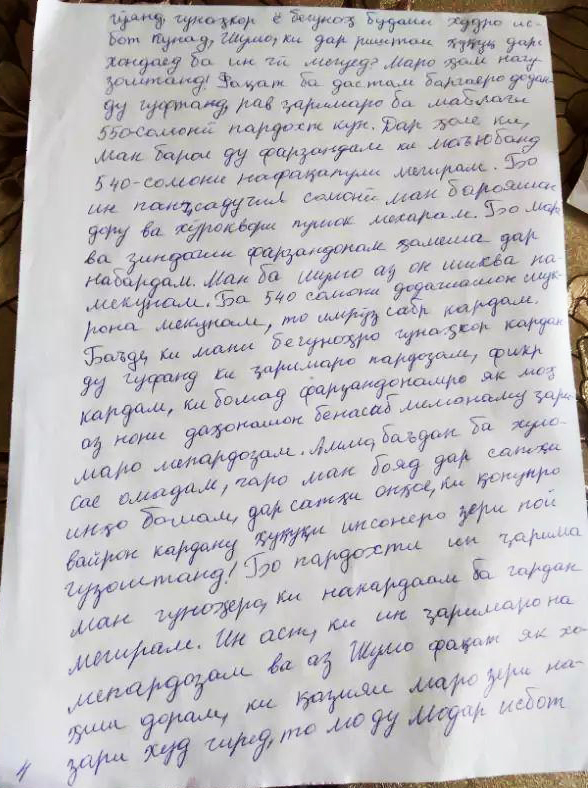 гӯянд, гунаҳкор ё бегуноҳ будани худро ис-
бот кунад, Шумо, ки дар риштаи ҳуқуқ дарс
хондаед ба ин чӣ мегуед? Маро ҳам нагу-
зоштанд! Фақат ба дастам барга ро дода-
нду гуфтанд, рав ҷаримаро ба маблағи
550 сомонӣ пардохт кун. Дар ҳоле ки,
ман барои ду фарзандам ки маъюбанд
540-сомони нафақапули мегирам. Бо
ин панҷсаду чил сомонӣ ман барояшон
дору ва хӯроквори пушок мехарам. Бо марг
ва зиндагии фарзандонам ҳамеша дар
набардам. Ман ба шумо аз он шиква на-
мекунам. Ба 540 сомони додагиашон шук-
рона мекунам, то имрӯз сабр кардам.
Баъде, ки мани бегуноҳро гунаҳкор кардан-
ду гуфанд ки ҷаримаро пардозам, фикр
кардам, ки бошад фарзандонамро як моҳ
аз нони даҳонашон бенасиб мемонаму ҷари-
маро мепардозам. Аммо, баъдан ба хуло-
сае омадам, чаро ман бояд дар сатҳи
инҳо бошам, дар сатҳи онҳое, ки қонунро
вайрон кардану ҳуқуқи инсонеро зери пой
гузоштанд! Бо пардохти ин ҷарима
ман гуноҳеро, ки накардаам ба гардан
мегирам. Ин аст, ки ин ҷаримаро на-
мепардозам ва аз Шумо фақат як хо-
ҳиш дорам, ки қазияи маро зери на-
зари худ гиред, то мо ду модар исбот
4